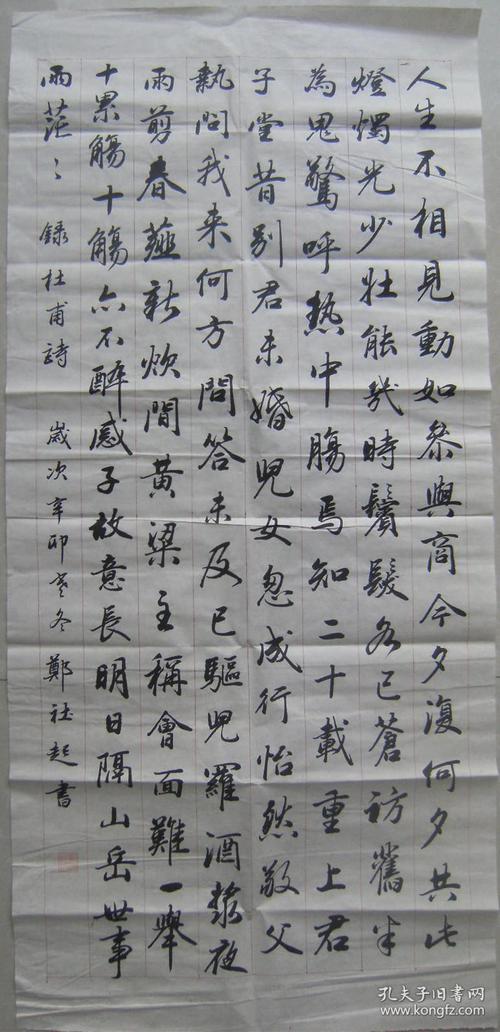 人生不相見動如參與商今夕復何夕共此
燈燭光少壯能幾時鬢髮各已蒼訪舊半
為鬼驚呼熱中腸焉知二十載重上君
子堂昔別君未婚兒女忽成行怡然敬父
執問我来何方問答未及已驅兒羅酒漿夜
雨剪春韮新炊間黃梁主稱會面難一舉
十累觴十觴亦不醉感子故意長明日隔山岳世事
兩茫々 錄杜甫詩 歲次辛卯冬 鄭社起書
孔夫子旧书网
www.kongfz.com